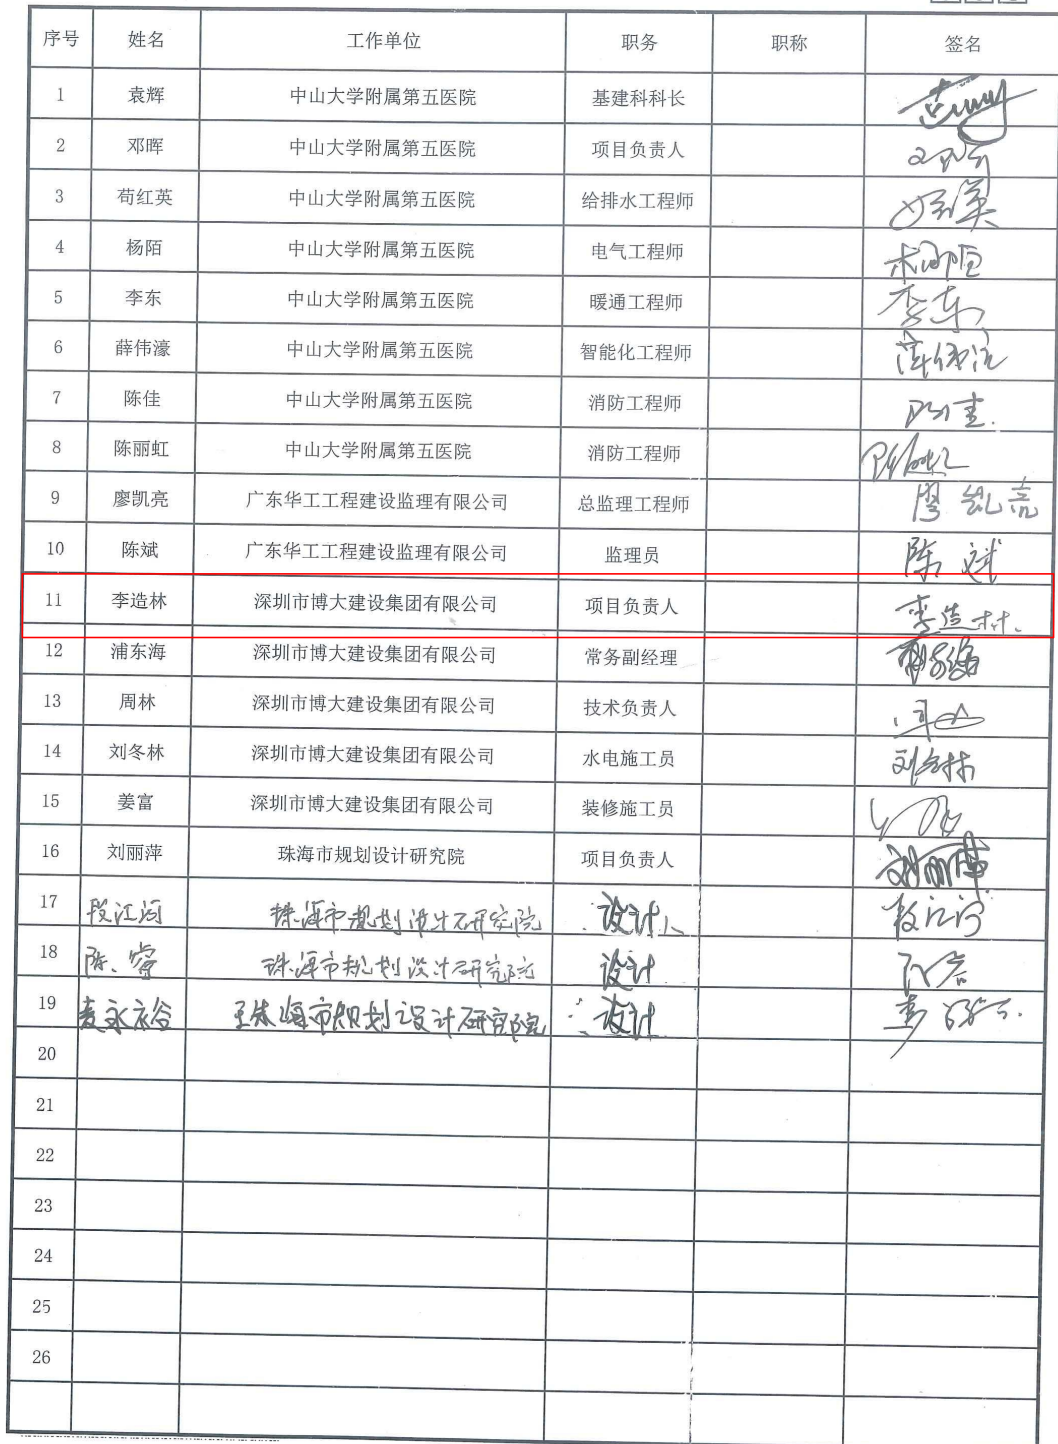 序号 姓名 工作单位 职务 职称 签名
1 袁辉 中山大学附属第五医院 基建科科长
2 邓晖 中山大学附属第五医院 项目负责人
3 苟红英 中山大学附属第五医院 给排水工程师
4 杨陌 中山大学附属第五医院 电气工程师
5 李东 中山大学附属第五医院 暖通工程师 李东
6 薛伟濠 中山大学附属第五医院 智能化工程师
7 陈佳 中山大学附属第五医院 消防工程师
8 陈丽虹 中山大学附属第五医院 消防工程师
9 廖凯亮 广东华工工程建设监理有限公司 总监理工程师 廖凯亮
10 陈斌 广东华工工程建设监理有限公司 监理员 陈斌
11 李造林 深圳市博大建设集团有限公司 项目负责人 李造林
12 浦东海 深圳市博大建设集团有限公司 常务副经理
13 周林 深圳市博大建设集团有限公司 技术负责人
14 刘冬林 深圳市博大建设集团有限公司 水电施工员 刘冬林
15 姜富 深圳市博大建设集团有限公司 装修施工员
16 刘丽萍 珠海市规划设计研究院 项目负责人 刘丽萍
17 段江河 珠海市规划设计研究院 设计 段江河
18 陈睿 珠海市规划设计研究院 设计
19 麦永裕 珠海市规划设计研究院 设计
20
21
22
23
24
25
26